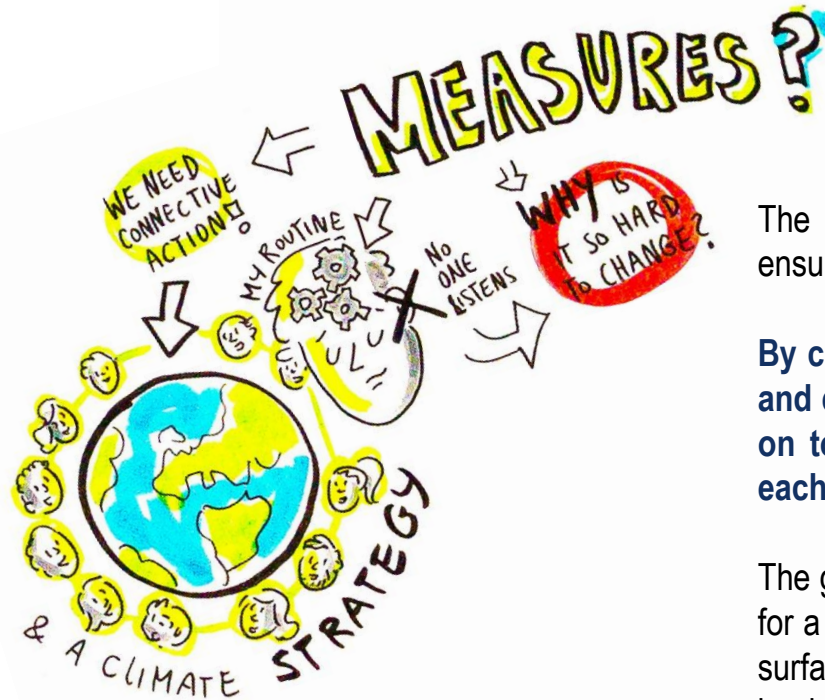 MEASURES?
WE NEED
CONNECTIVE
ACTION!
MY ROUTINE
NO
ONE
LISTENS
WHY IS
IT SO HARD
TO CHANGE?
& A CLIMATE STRATEGY
The
ensu
By c
and
on te
each
The g
for a
surfa